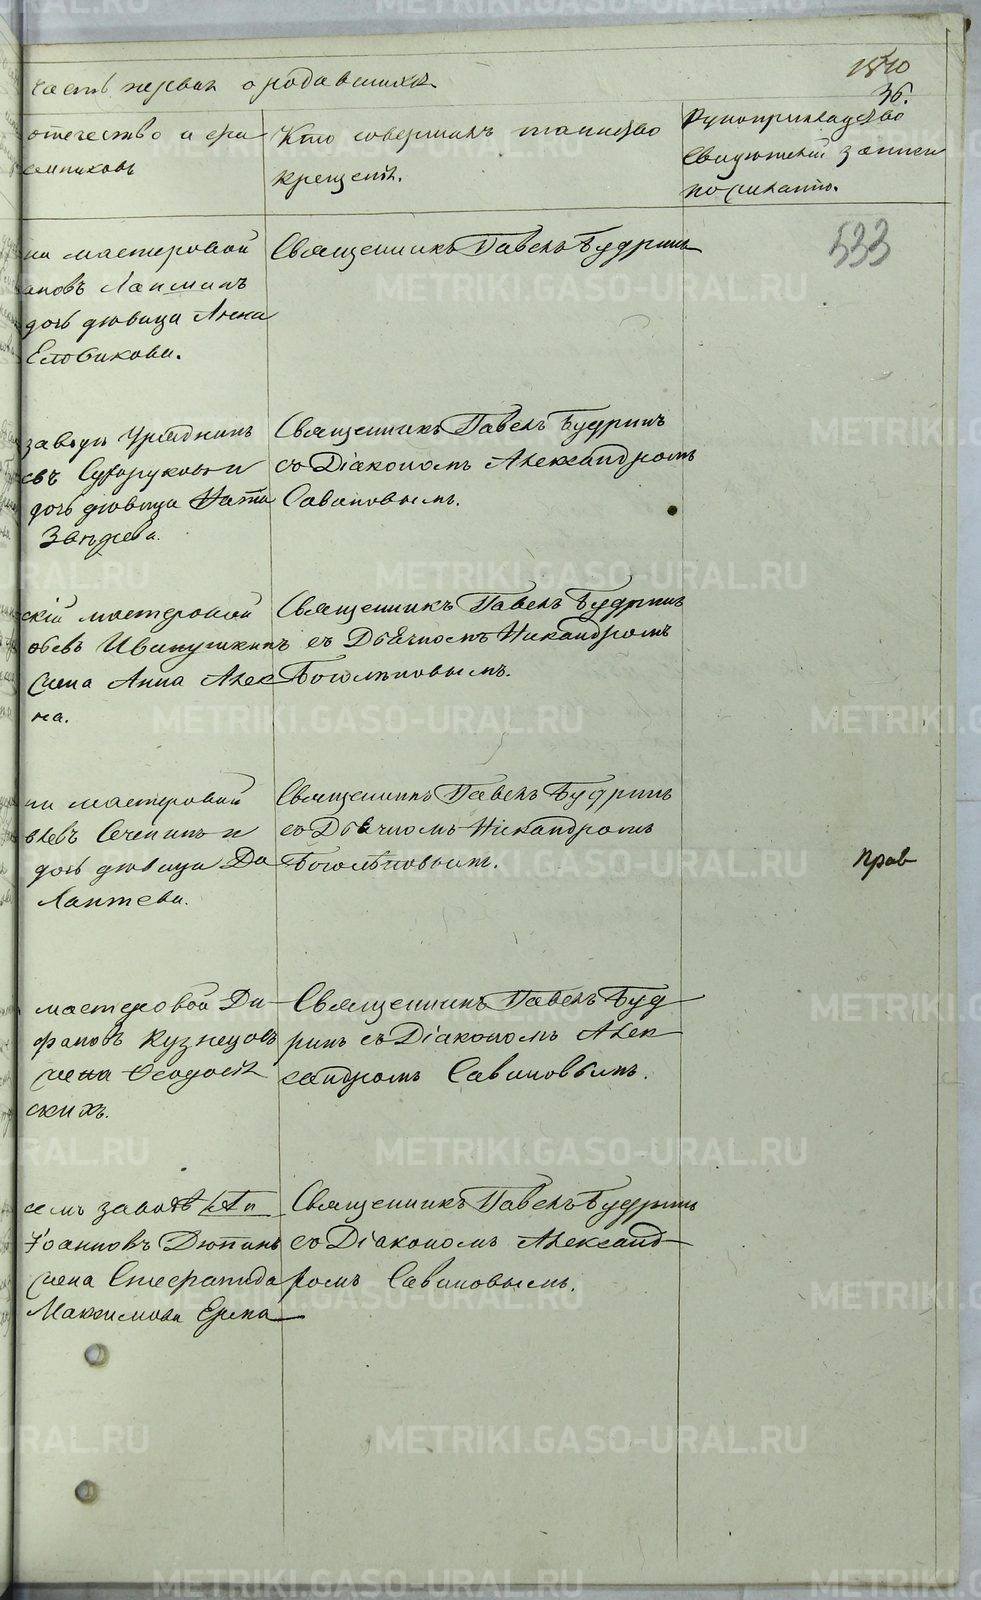 часть первая о родившихся
1840
36.
отчество и фа
емниковъ
Кто совершалъ таинство
крещенія.
Рукоприкладство
Свидѣтелей записи
по желанію.
533
ки мастеровой
ановъ Лапшинъ
дочь дѣвица Анна
Еловикова.
Священникъ Павелъ Будринъ
завода
евъ Сухоруковъ и
дочь дѣвица Ната
Звѣрева.
Священникъ Павелъ Будринъ
со Діакономъ Александромъ
Савиновымъ.
скій мастеровой
Иванушкинъ
жена Анна Алек
на.
Священникъ Павелъ Будринъ
съ Дьячкомъ Никандромъ
Боголѣповымъ.
ки мастеровой
и
дочь дѣвица Да
Лаптева.
Священникъ Павелъ Будринъ
со Дьячкомъ Никандромъ
Боголѣповымъ.
прав
мастеровой
фановъ Кузнецовъ
жена Ѳеодосія
скихъ.
Священникъ Павелъ Буд
ринъ со Діакономъ Алек
сандромъ Савиновымъ.
семъ заводѣ
Іоанновъ Дюпинъ
жена
Максимова
Священникъ Павелъ Будринъ
со Діакономъ Александ
ромъ Савиновымъ.
METRIKI.GASO-URAL.RU